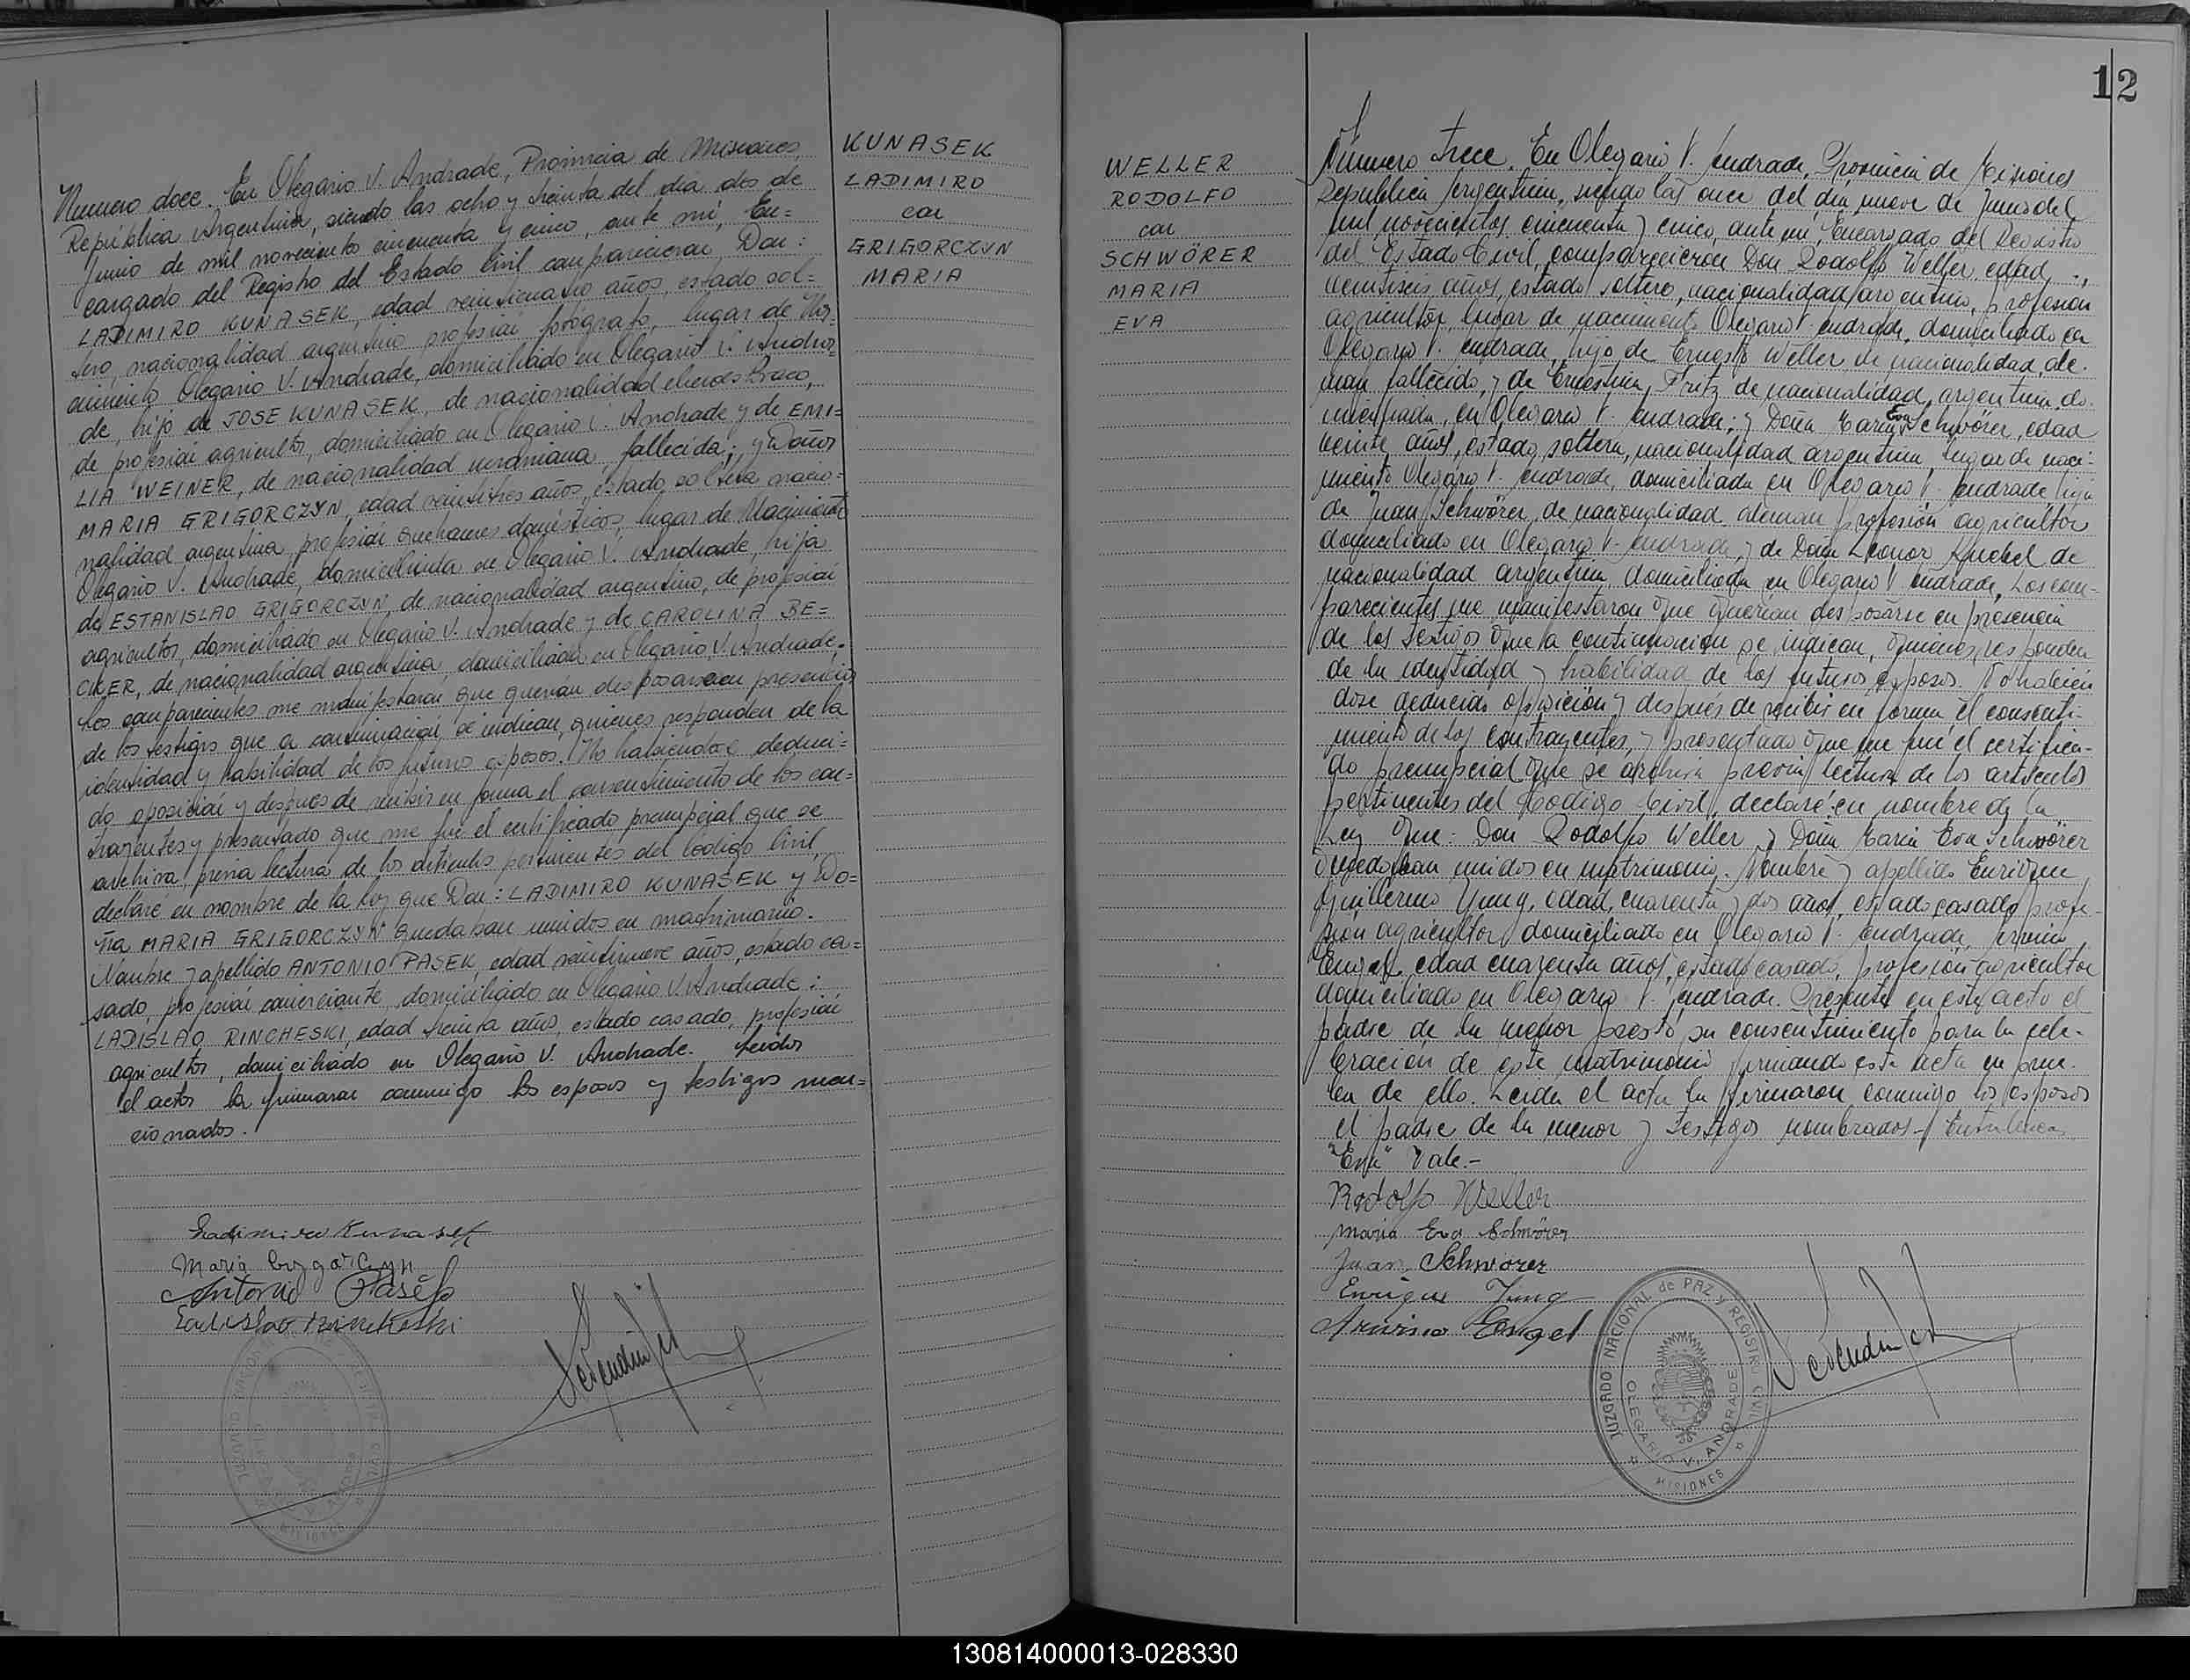 Numero doce. En Olegario V. Andrade, Provincia de Misiones,
República Argentina, siendo las ocho y treinta del dia dos de
Junio de mil novecientos cincuenta y cinco, ante mi, En=
cargado del Registro del Estado Civil comparecieron Don:
LADIMIRO KUNASEK, edad veinticuatro años, estado sol=
tero, nacionalidad argentino profesión fotógrafo, lugar de Na=
cimiento Olegario V. Andrade, domiciliado en Olegario V. Andra=
de, hijo de JOSE KUNASEK, de nacionalidad
de profesión agricultor, domiciliado en Olegario V. Andrade y de EMI=
LIA WEINER, de nacionalidad ucraniana, fallecida; y Doña
MARIA GRIGORCZYN, edad veintitres años, estado soltera nacio=
nalidad argentina, profesión quehaceres domésticos, lugar de Nacimiento
Olegario V. Andrade, domiciliada en Olegario V. Andrade, hija
de ESTANISLAO GRIGORCZYN, de nacionalidad argentino, de profesión
agricultor, domiciliado en Olegario V. Andrade y de CAROLINA BE=
CKER, de nacionalidad argentina, domiciliada en Olegario V. Andrade.
Los comparecientes me manifestaron que querían desposarse en presencia
de los testigos que a continuación se indican, quienes responden de la
identidad y habilidad de los futuros esposos. No habiendose deduci=
do oposición y después de recibir en forma el consentimiento de los con=
trayentes y presentado que me fué el certificado prenupcial que se
archiva, previa lectura de los articulos pertinentes del Código Civil,
declaré en nombre de la Ley que Don: LADIMIRO KUNASEK y Do=
ña MARIA GRIGORCZYN quedaban unidos en matrimonio.
Nombre y apellido ANTONIO PASEK, edad veintinueve años, estado ca=
sado, profesión comerciante, domiciliado en Olegario V. Andrade;
LADISLAO RINCHESKI, edad treinta años, estado casado, profesión
agricultor, domiciliado en Olegario V. Andrade. Leída
el acta la firmaron conmigo los esposos y testigos men=
cionados.
Ladimiro Kunasek
Maria Grigorczyn
Antonio Pasek
Ladislao Rincheski
KUNASEK
LADIMIRO
con
GRIGORCZYN
MARIA
WELLER
RODOLFO
con
SCHWÖRER
MARIA
EVA
12
Número trece. En Olegario V. Andrade, Provincia de Misiones
República Argentina, siendo las once del día nueve de Junio del
mil novecientos cincuenta y cinco, ante mi, Encargado del Registro
del Estado Civil, comparecieron Don Rodolfo Weller, edad
veintiseis años, estado soltero, nacionalidad argentino, profesión
agricultor, lugar de nacimiento Olegario V. Andrade, domiciliado en
Olegario V. Andrade, hijo de Ernesto Weller de nacionalidad ale-
man, fallecido, y de Ernestina Fritz de nacionalidad argentina, do-
miciliada en Olegario V. Andrade; y Doña María Eva Schwörer, edad
veinte años, estado soltera, nacionalidad argentina, lugar de naci-
miento Olegario V. Andrade, domiciliada en Olegario V. Andrade hija
de Juan Schwörer, de nacionalidad aleman, profesión agricultor
domiciliado en Olegario V. Andrade, y de Doña Leonor Knebel de
nacionalidad argentina, domiciliada en Olegario V. Andrade, Los com-
parecientes me manifestaron que querían desposarse en presencia
de los testigos que a continuación se indican, quienes responden
de la identidad y habilidad de los futuros esposos. No habien
dose deducido oposición y después de recibir en forma el consenti-
miento de los contrayentes, y presentado que me fué el certifica-
do prenupcial que se archiva previa lectura de los artículos
pertinentes del Codigo Civil, declaré en nombre de la
Ley que: Don Rodolfo Weller y Doña María Eva Schwörer
quedaban unidos en matrimonio. Nombre y apellido Enrique
Guillermo Jung, edad cuarenta y dos años, estado casado, profe-
sión agricultor, domiciliado en Olegario V. Andrade, Arvino
Engel, edad cuarenta años, estado casado, profesión agricultor
domiciliado en Olegario V. Andrade. Presente en este acto el
padre de la menor prestó su consentimiento para la cele-
bración de este matrimonio firmando esta acta en prue-
ba de ello. Leída el acta la firmaron conmigo los esposos
el padre de la menor y testigos nombrados- Entrelineas
"Eva" Vale.-
Rodolfo Weller
Maria Eva Schwörer
Juan Schwörer
Enrique Jung
Arvino Engel
JUZGADO NACIONAL de PAZ Y REGISTRO CIVIL
OLEGARIO V. ANDRADE
MISIONES
130814000013-028330